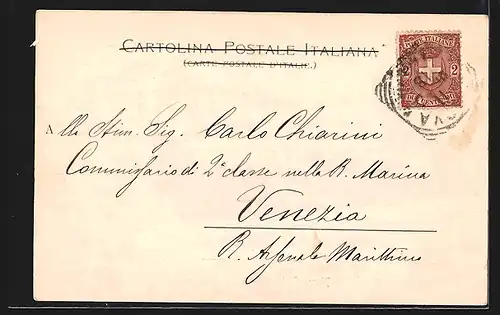 CARTOLINA POSTALE ITALIANA
(CARTE POSTALE D'ITALIE.)
POSTE ITALIANE
2
Alla Stim. Sig. Carlo Chiarini
Commissario di 2ª classe nella R. Marina
Venezia
R. Arsenale Marittimo